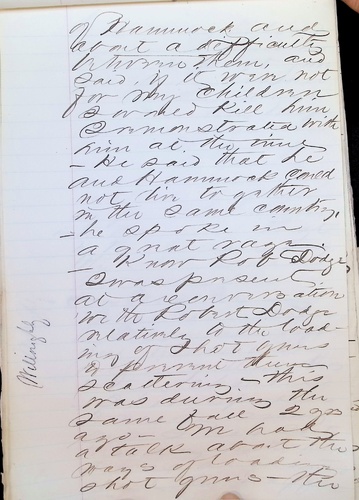 of Hammock and
about a difficulty
between them, and
said, if it were not
for my children
I would kill him
I remonstrated with
him at the time
- He said that he
and Hammock could
not live together
in the same country,
- he spoke in
a great rage.
- I know Robt Dodge,
I was present
at a conversation
with Robert Dodge
relatively to the load-
ing of shot guns
to prevent their
scattering - this
was during the
same fall 2 yrs
ago - We had
a talk about the
ways of loading
shot guns - the
Willoughby